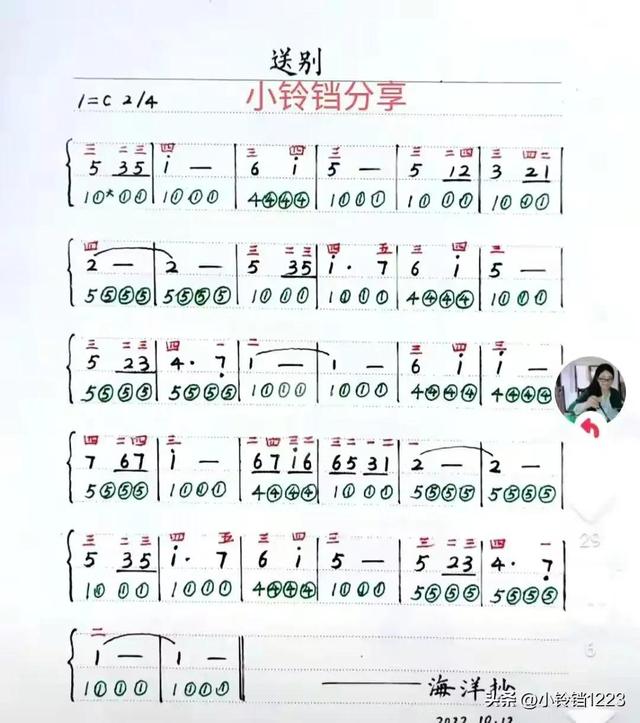 送别
小铃铛分享
1=C 2/4
三 二三 四 三 四 三 三 二四 三 四二
5 35 | i — | 6 i | 5 — | 5 12 | 3 21
1 0 * ① ① | 1 0 0 0 | 4 ④ ④ ④ | 1 0 0 0 | 1 0 0 0 | 1 0 ① ①
四 三 二三 四 五 三 四 三
2 — | 2 — | 5 35 | i · 7 | 6 i | 5 —
5 ⑤ ⑤ ⑤ | 5 ⑤ ⑤ ⑤ | 1 0 0 0 | 1 0 0 0 | 4 ④ ④ ④ | 1 0 0 0
三 二三 四 一 二 三 四
5 23 | 4 · 7̣ | 1 — | 1 — | 6 i | i —
5 ⑤ ⑤ ⑤ | 5 ⑤ ⑤ ⑤ | 1 0 0 0 | 1 0 0 0 | 4 ④ ④ ④ | 4 ④ ④ ④
四 二四 三 二四三二 三二一二 一
7 67 | i — | 67 i6 | 65 31 | 2 — | 2 —
5 ⑤ ⑤ ⑤ | 1 0 0 0 | 4 ④ ④ ④ | 1 0 0 0 | 5 ⑤ ⑤ ⑤ | 5 ⑤ ⑤ ⑤
三 二三 四 五 三 四 三 三 二三 四 一
5 35 | i · 7 | 6 i | 5 — | 5 23 | 4 · 7̣
1 0 0 0 | 1 0 0 0 | 4 ④ ④ ④ | 1 0 0 0 | 5 ⑤ ⑤ ⑤ | 5 ⑤ ⑤ ⑤
二
1 — | 1 —
1 0 0 0 | 1 0 0 0
—— 海洋抄
2022.10.12
29
6
头条 @小铃铛1223